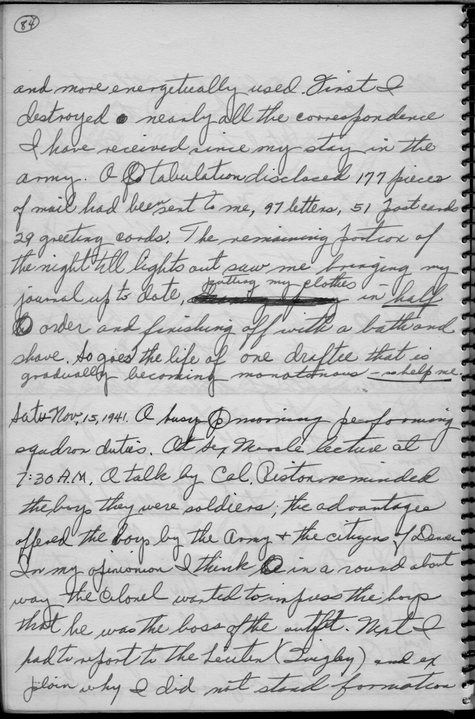 84
and more energetually used. First I
destroyed nearly all the correspondence
I have received since my stay in the
army. A tabulation disclosed 177 pieces
of mail had been sent to me, 97 letters, 51 post cards
29 greeting cards. The remaining portion of
the night till lights out saw me bringing my
journal up to date, putting my clothes in half
order and finishing off with a bath and
shave. So goes the life of one draftee that is
gradually becoming monotonous - so help me.
Sat. Nov, 15, 1941. A busy morning performing
squadron duties. At Sex Morale lecture at
7:30 A.M. A talk by Col. Piston reminded
the boys they were soldiers, the advantages
offered the boys by the Army + the citizens of Denver
In my opinionion I think in a round about
way the Colonel wanted to impress the boys
that he was the boss of the outfit. Next I
had to report to the Lieuten (Quigley) and ex
plain why I did not stand formation